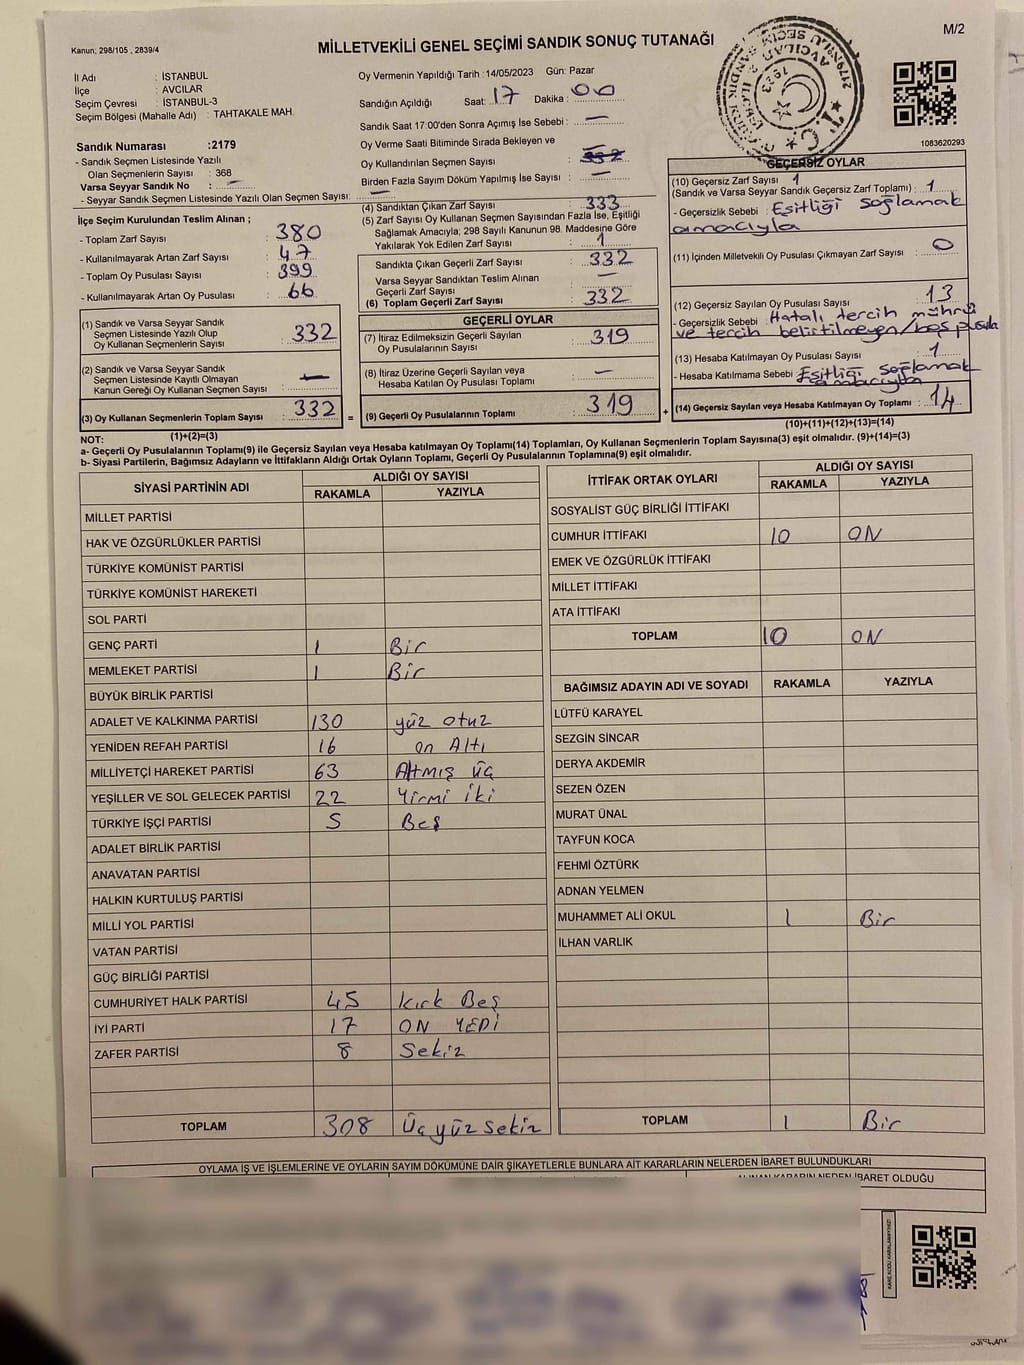 Kanun; 298/105 , 2839/4
MİLLETVEKİLİ GENEL SEÇİMİ SANDIK SONUÇ TUTANAĞI
M/2
İl Adı : İSTANBUL
İlçe : AVCILAR
Seçim Çevresi : İSTANBUL-3
Seçim Bölgesi (Mahalle Adı) : TAHTAKALE MAH.
Sandık Numarası :2179
- Sandık Seçmen Listesinde Yazılı
Olan Seçmenlerin Sayısı : 368
Varsa Seyyar Sandık No : —
- Seyyar Sandık Seçmen Listesinde Yazılı Olan Seçmen Sayısı: —
Oy Vermenin Yapıldığı Tarih :14/05/2023 Gün: Pazar
Sandığın Açıldığı Saat: 17 Dakika : 00
Sandık Saat 17:00'den Sonra Açımış İse Sebebi : —
Oy Verme Saati Bitiminde Sırada Bekleyen ve
Oy Kullandırılan Seçmen Sayısı :
Birden Fazla Sayım Döküm Yapılmış İse Sayısı : —
1083620293
İlçe Seçim Kurulundan Teslim Alınan ;
- Toplam Zarf Sayısı : 380
- Kullanılmayarak Artan Zarf Sayısı : 47
- Toplam Oy Pusulası Sayısı : 399
- Kullanılmayarak Artan Oy Pusulası : 66
(1) Sandık ve Varsa Seyyar Sandık
Seçmen Listesinde Yazılı Olup
Oy Kullanan Seçmenlerin Sayısı : 332
(2) Sandık ve Varsa Seyyar Sandık
Seçmen Listesinde Kayıtlı Olmayan
Kanun Gereği Oy Kullanan Seçmen Sayısı : —
(3) Oy Kullanan Seçmenlerin Toplam Sayısı : 332 =
(1)+(2)=(3)
(4) Sandıktan Çıkan Zarf Sayısı : 333
(5) Zarf Sayısı Oy Kullanan Seçmen Sayısından Fazla İse, Eşitliği
Sağlamak Amacıyla; 298 Sayılı Kanunun 98. Maddesine Göre
Yakılarak Yok Edilen Zarf Sayısı : 1
Sandıkta Çıkan Geçerli Zarf Sayısı : 332
Varsa Seyyar Sandıktan Teslim Alınan
Geçerli Zarf Sayısı : —
(6) Toplam Geçerli Zarf Sayısı : 332
GEÇERLİ OYLAR
(7) İtiraz Edilmeksizin Geçerli Sayılan
Oy Pusulalarının Sayısı : 319
(8) İtiraz Üzerine Geçerli Sayılan veya
Hesaba Katılan Oy Pusulası Toplamı : —
(9) Geçerli Oy Pusulalarının Toplamı : 319 +
GEÇERSİZ OYLAR
(10) Geçersiz Zarf Sayısı 1
(Sandık ve Varsa Seyyar Sandık Geçersiz Zarf Toplamı) : 1
- Geçersizlik Sebebi : Eşitliği sağlamak
amacıyla
(11) İçinden Milletvekili Oy Pusulası Çıkmayan Zarf Sayısı : 0
(12) Geçersiz Sayılan Oy Pusulası Sayısı : 13
- Geçersizlik Sebebi : Hatalı tercih mührü
ve tercih belirtilmeyen/boş pusula
(13) Hesaba Katılmayan Oy Pusulası Sayısı : 1
- Hesaba Katılmama Sebebi : Eşitliği sağlamak
amacıyla
(14) Geçersiz Sayılan veya Hesaba Katılmayan Oy Toplamı : 14
(10)+(11)+(12)+(13)=(14)
NOT:
a- Geçerli Oy Pusulalarının Toplamı(9) ile Geçersiz Sayılan veya Hesaba katılmayan Oy Toplamı(14) Toplamları, Oy Kullanan Seçmenlerin Toplam Sayısına(3) eşit olmalıdır. (9)+(14)=(3)
b- Siyasi Partilerin, Bağımsız Adayların ve İttifakların Aldığı Ortak Oyların Toplamı, Geçerli Oy Pusulalarının Toplamına(9) eşit olmalıdır.
SİYASİ PARTİNİN ADI ALDIĞI OY SAYISI
RAKAMLA YAZIYLA
MİLLET PARTİSİ
HAK VE ÖZGÜRLÜKLER PARTİSİ
TÜRKİYE KOMÜNİST PARTİSİ
TÜRKİYE KOMÜNİST HAREKETİ
SOL PARTİ
GENÇ PARTİ 1 Bir
MEMLEKET PARTİSİ 1 Bir
BÜYÜK BİRLİK PARTİSİ
ADALET VE KALKINMA PARTİSİ 130 yüz otuz
YENİDEN REFAH PARTİSİ 16 on Altı
MİLLİYETÇİ HAREKET PARTİSİ 63 Altmış üç
YEŞİLLER VE SOL GELECEK PARTİSİ 22 Yirmi iki
TÜRKİYE İŞÇİ PARTİSİ 5 Beş
ADALET BİRLİK PARTİSİ
ANAVATAN PARTİSİ
HALKIN KURTULUŞ PARTİSİ
MİLLİ YOL PARTİSİ
VATAN PARTİSİ
GÜÇ BİRLİĞİ PARTİSİ
CUMHURİYET HALK PARTİSİ 45 Kırk Beş
İYİ PARTİ 17 ON YEDİ
ZAFER PARTİSİ 8 Sekiz
TOPLAM 308 Üçyüzsekiz
İTTİFAK ORTAK OYLARI ALDIĞI OY SAYISI
RAKAMLA YAZIYLA
SOSYALİST GÜÇ BİRLİĞİ İTTİFAKI
CUMHUR İTTİFAKI 10 ON
EMEK VE ÖZGÜRLÜK İTTİFAKI
MİLLET İTTİFAKI
ATA İTTİFAKI
TOPLAM 10 ON
BAĞIMSIZ ADAYIN ADI VE SOYADI RAKAMLA YAZIYLA
LÜTFÜ KARAYEL
SEZGİN SİNCAR
DERYA AKDEMİR
SEZEN ÖZEN
MURAT ÜNAL
TAYFUN KOCA
FEHMİ ÖZTÜRK
ADNAN YELMEN
MUHAMMET ALİ OKUL 1 Bir
İLHAN VARLIK
TOPLAM 1 Bir
OYLAMA İŞ VE İŞLEMLERİNE VE OYLARIN SAYIM DÖKÜMÜNE DAİR ŞİKAYETLERLE BUNLARA AİT KARARLARIN NELERDEN İBARET BULUNDUKLARI
ALINAN KARARIN NEDEN İBARET OLDUĞU